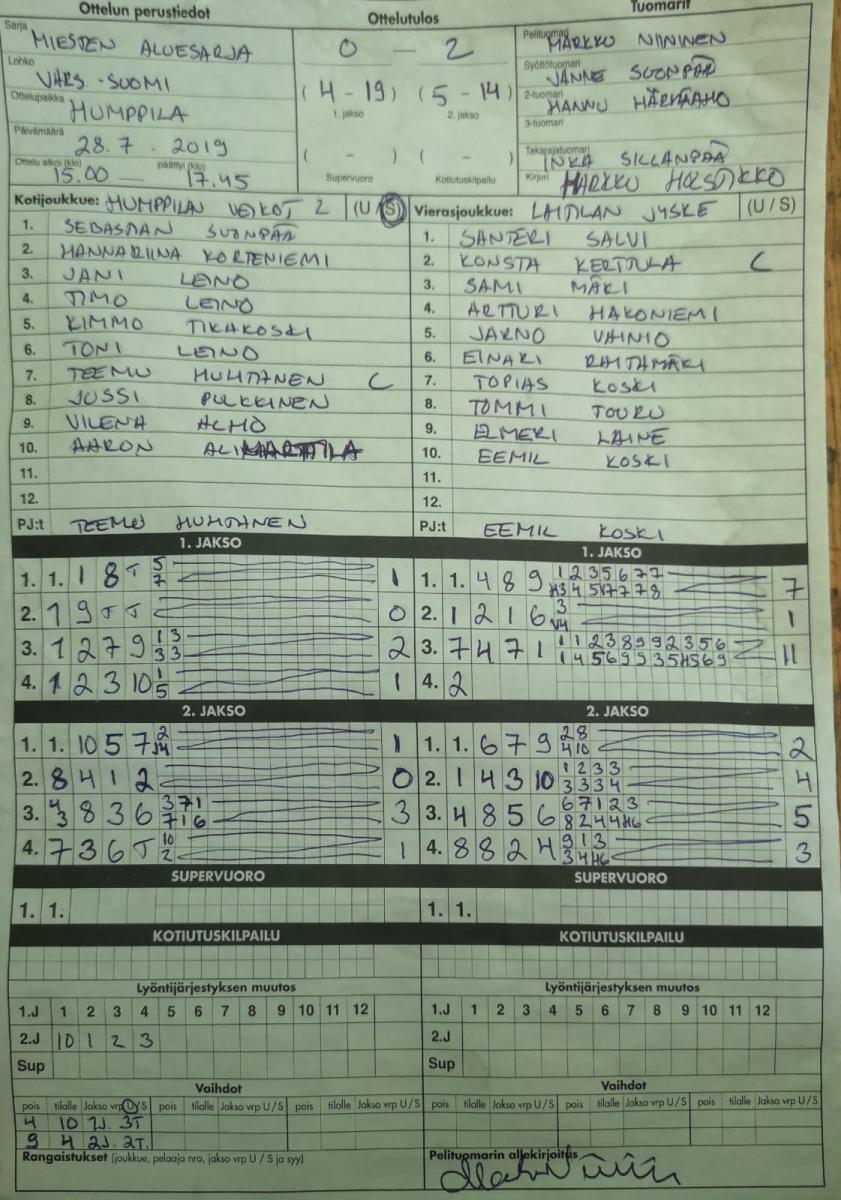 Ottelun perustiedot Ottelutulos Tuomarit
Sarja MIESTEN ALUESARJA 0 — 2 Pelituomari MARKKU NIININEN
Lohko VARS-SUOMI (4 - 19) (5 - 14) Syöttötuomari JANNE SUONPÄÄ
Ottelupaikka HUMPPILA 1. jakso 2. jakso 2-tuomari HANNU
Päivämäärä 28.7.2019 ( - ) ( - ) 3-tuomari
Takarajatuomari INKA SILLANPÄÄ
Ottelu alkoi (klo) 15.00 — päättyi (klo) 17.45 Supervuoro Kotiutuskilpailu Kirjuri MARKKU
Kotijoukkue: HUMPPILAN VEIKOT 2 (U / S) Vierasjoukkue: LAITILAN JYSKE (U / S)
1. SEBASTIAN SUONPÄÄ 1. SANTERI SALVI
2. HANNARIINA KORTENIEMI 2. KONSTA KERTTULA C
3. JANI LEINO 3. SAMI MÄKI
4. TIMO LEINO 4. ARTTURI HAKONIEMI
5. KIMMO TIKAKOSKI 5. JARNO VAINIO
6. TONI LEINO 6. EINARI RAITAMÄKI
7. TEEMU HUHTANEN C 7. TOPIAS KOSKI
8. JUSSI PULKKINEN 8. TOMMI TOURU
9. VILENA ALHO 9. ELMERI LAINE
10. AARON 10. EEMIL KOSKI
11. 11.
12. 12.
PJ:t TEEMU HUHTANEN PJ:t EEMIL KOSKI
1. JAKSO 1. JAKSO
1. 1. 1 8 J 5 7 1 1. 1. 4 8 9 1 2 3 5 6 7 7 7
2. 1 9 J J 0 2. 1 2 1 6 3 1
3. 1 2 7 9 1 3 3 3 2 3. 7 4 7 1 1 1 2 3 8 9 9 2 3 5 6 11
4. 1 2 3 10 1 5 1 4. 2
2. JAKSO 2. JAKSO
1. 1. 10 5 7 2 1 1. 1. 6 7 9 2 8 4 10 2
2. 8 4 1 2 0 2. 1 4 3 10 1 2 3 3 3 3 3 4 4
3. 8 3 6 3 7 1 7 1 6 3 3. 4 8 5 6 6 7 1 2 3 5
4. 7 3 6 J 10 2 1 4. 8 8 2 4 9 1 3 3
SUPERVUORO SUPERVUORO
1. 1. 1. 1.
KOTIUTUSKILPAILU KOTIUTUSKILPAILU
Lyöntijärjestyksen muutos Lyöntijärjestyksen muutos
1.J 1 2 3 4 5 6 7 8 9 10 11 12 1.J 1 2 3 4 5 6 7 8 9 10 11 12
2.J 10 1 2 3 2.J
Sup Sup
Vaihdot Vaihdot
pois tilalle Jakso vrp U/S pois tilalle Jakso vrp U / S pois tilalle Jakso vrp U / S pois tilalle Jakso vrp U / S pois tilalle Jakso vrp U / S pois tilalle Jakso vrp U / S
4 10 3T
9 4 2J. 2T.
Rangaistukset (joukkue, pelaaja nro, jakso vrp U / S ja syy) Pelituomarin allekirjoitus